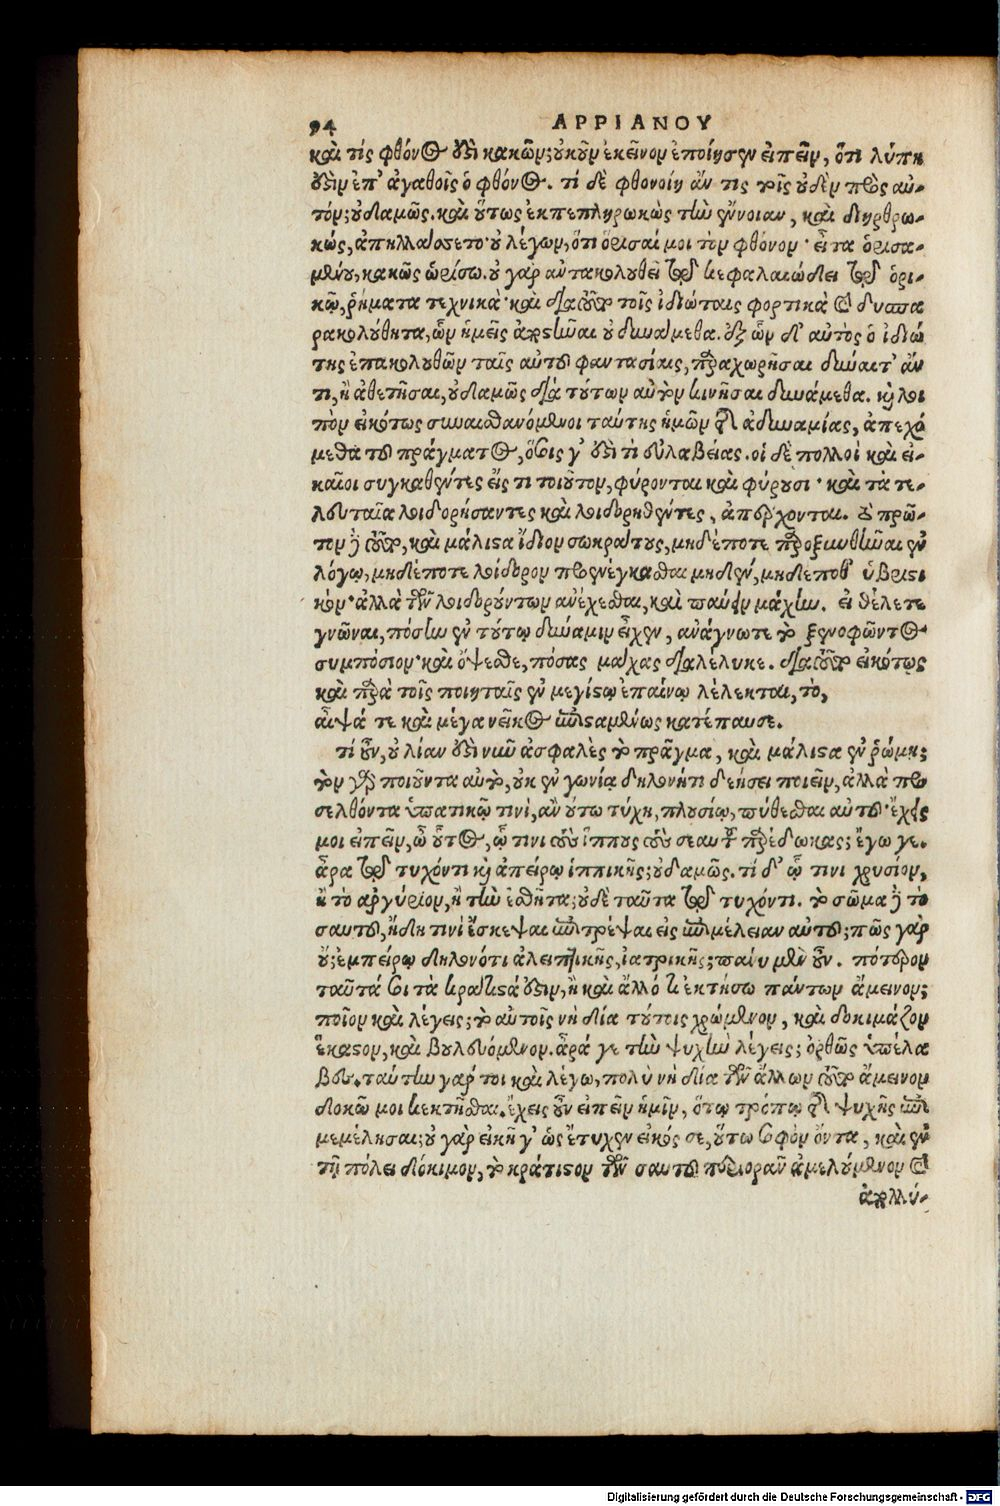 94 ΑΡΡΙΑΝΟΥ
καὶ τίς φθόνος ἐστὶ κακῶν; οὐκοῦν ἐκεῖνον ἐποίησεν εἰπεῖν, ὅτι λύπη
ἐστὶν ἐπ' ἀγαθοῖς ὁ φθόνος. τί δὲ φθονοίη ἄν τις τοῖς οὐδὲν πρὸς αὐ-
τόν; οὐδαμῶς. καὶ οὕτως ἐκπεπληρωκὼς τὴν ἔννοιαν, καὶ διηρθρω-
κώς, ἀπηλλάσσετο· οὐ λέγων, ὅτι ὅρισαί μοι τὸν φθόνον· εἶτα ὁρισα-
μένου, κακῶς ὡρίσω. οὐ γὰρ ἀντακολουθεῖ τῷ κεφαλαιώδει τῷ ὁρι-
κῷ, ῥήματα τεχνικὰ· καὶ διατοῦτο τοῖς ἰδιώταις φορτικὰ καὶ δυσπα
ρακολούθητα, ὧν ἡμεῖς ἀποστῆναι οὐ δυνάμεθα. ἐξ ὧν δ' αὐτὸς ὁ ἰδιώ
της ἐπακολουθῶν ταῖς αὑτοῦ φαντασίαις, παραχωρῆσαι δύναιτ' ἄν
τι, ἢ ἀθετῆσαι, οὐδαμῶς διὰ τούτων αὐτὸν κινῆσαι δυνάμεθα. καὶ λοι
πὸν εἰκότως συναισθανόμενοι ταύτης ἡμῶν τῆς ἀδυναμίας, ἀπεχό
μεθα τοῦ πράγματος, ὅσοις γ' ἐστὶ τὶ εὐλαβείας. οἱ δὲ πολλοὶ καὶ εἰ-
καῖοι συγκαθέντες εἴς τι τοιοῦτον, φύρονται καὶ φύρουσι· καὶ τὰ τε-
λευταῖα λοιδορήσαντες καὶ λοιδορηθέντες, ἀπέρχονται. τὸ πρῶ-
τον δὲ τοῦτο, καὶ μάλιστα ἴδιον σωκράτους, μηδέποτε παροξυνθῆναι ἐν
λόγῳ, μηδέποτε λοίδορον προενέγκασθαι μηδὲν, μηδέποθ' ὑβριστι
κὸν· ἀλλὰ τῶν λοιδορούντων ἀνέχεσθαι, καὶ παύειν μάχην. εἰ θέλετε
γνῶναι, πόσην ἐν τούτῳ δύναμιν εἶχεν, ἀνάγνωτε τὸ ξενοφῶντος
συμπόσιον· καὶ ὄψεσθε, πόσας μάχας διαλέλυκε. διατοῦτο εἰκότως
καὶ παρὰ τοῖς ποιηταῖς ἐν μεγίστῳ ἐπαίνῳ λέλεκται, τὸ,
αἶψά τε καὶ μέγα νεῖκος ἐπισταμένως κατέπαυσε.
τί οὖν, οὐ λίαν ἐστὶ νῦν ἀσφαλὲς τὸ πρᾶγμα, καὶ μάλιστα ἐν ῥώμῃ;
τὸν γὰρ ποιοῦντα αὐτὸ, οὐκ ἐν γωνίᾳ δηλονήτι δεήσει ποιεῖν, ἀλλὰ προ
σελθόντα ὑπατικῷ τινὶ, ἂν οὕτω τύχῃ, πλουσίῳ, πύθεσθαι αὐτοῦ· ἔχεις
μοι εἰπεῖν, ὦ οὗτος, ᾧ τινι τοὺς ἵππους τοὺς σεαυτοῦ παρέδωκας; ἔγω γε.
ἆρα τῷ τυχόντι καὶ ἀπείρῳ ἱππικῆς; οὐδαμῶς. τί δ' ᾧ τινι χρυσίον,
ἢ τὸ ἀργύριον, ἢ τὴν ἐσθῆτα; οὐδὲ ταῦτα τῷ τυχόντι. τὸ σῶμα δὲ τὸ
σαυτοῦ, ἤδη τινὶ ἔσκεψαι ἐπιτρέψαι εἰς ἐπιμέλειαν αὐτοῦ; πῶς γὰρ
οὔ; ἐμπείρῳ δηλονότι ἀλειπτικῆς, ἰατρικῆς; πάνυ μὲν οὖν. πότερον
ταῦτά σοι τὰ κράτιστά ἐστιν, ἢ καὶ ἄλλό κ ἐκτήσω πάντων ἄμεινον;
ποῖον καὶ λέγεις; τὸ αὐτοῖς νὴ δία τούτοις χρώμενον, καὶ δοκιμάζον
ἕκαστον, καὶ βουλευόμενον. ἆρά γε τὴν ψυχὴν λέγεις; ὀρθῶς ὑπέλα
βες. ταύτην γάρ τοι καὶ λέγω, πολὺ νὴ δία τῶν ἄλλων τοῦτο ἄμεινον
δοκῶ μοι κεκτῆσθαι. ἔχεις οὖν εἰπεῖν ἡμῖν, ὅτῳ τρόπῳ τῆς ψυχῆς ἐπι
μεμέλησαι; οὐ γὰρ εἰκῆ γ' ὡς ἔτυχεν εἰκός σε, οὕτω σοφὸν ὄντα, καὶ ἐν
τῇ πόλει δόκιμον, τὸ κράτιστον τῶν σαυτοῦ περιορᾶν ἀμελούμενον καὶ
ἀπολλύ-
Digitalisierung gefördert durch die Deutsche Forschungsgemeinschaft - DFG